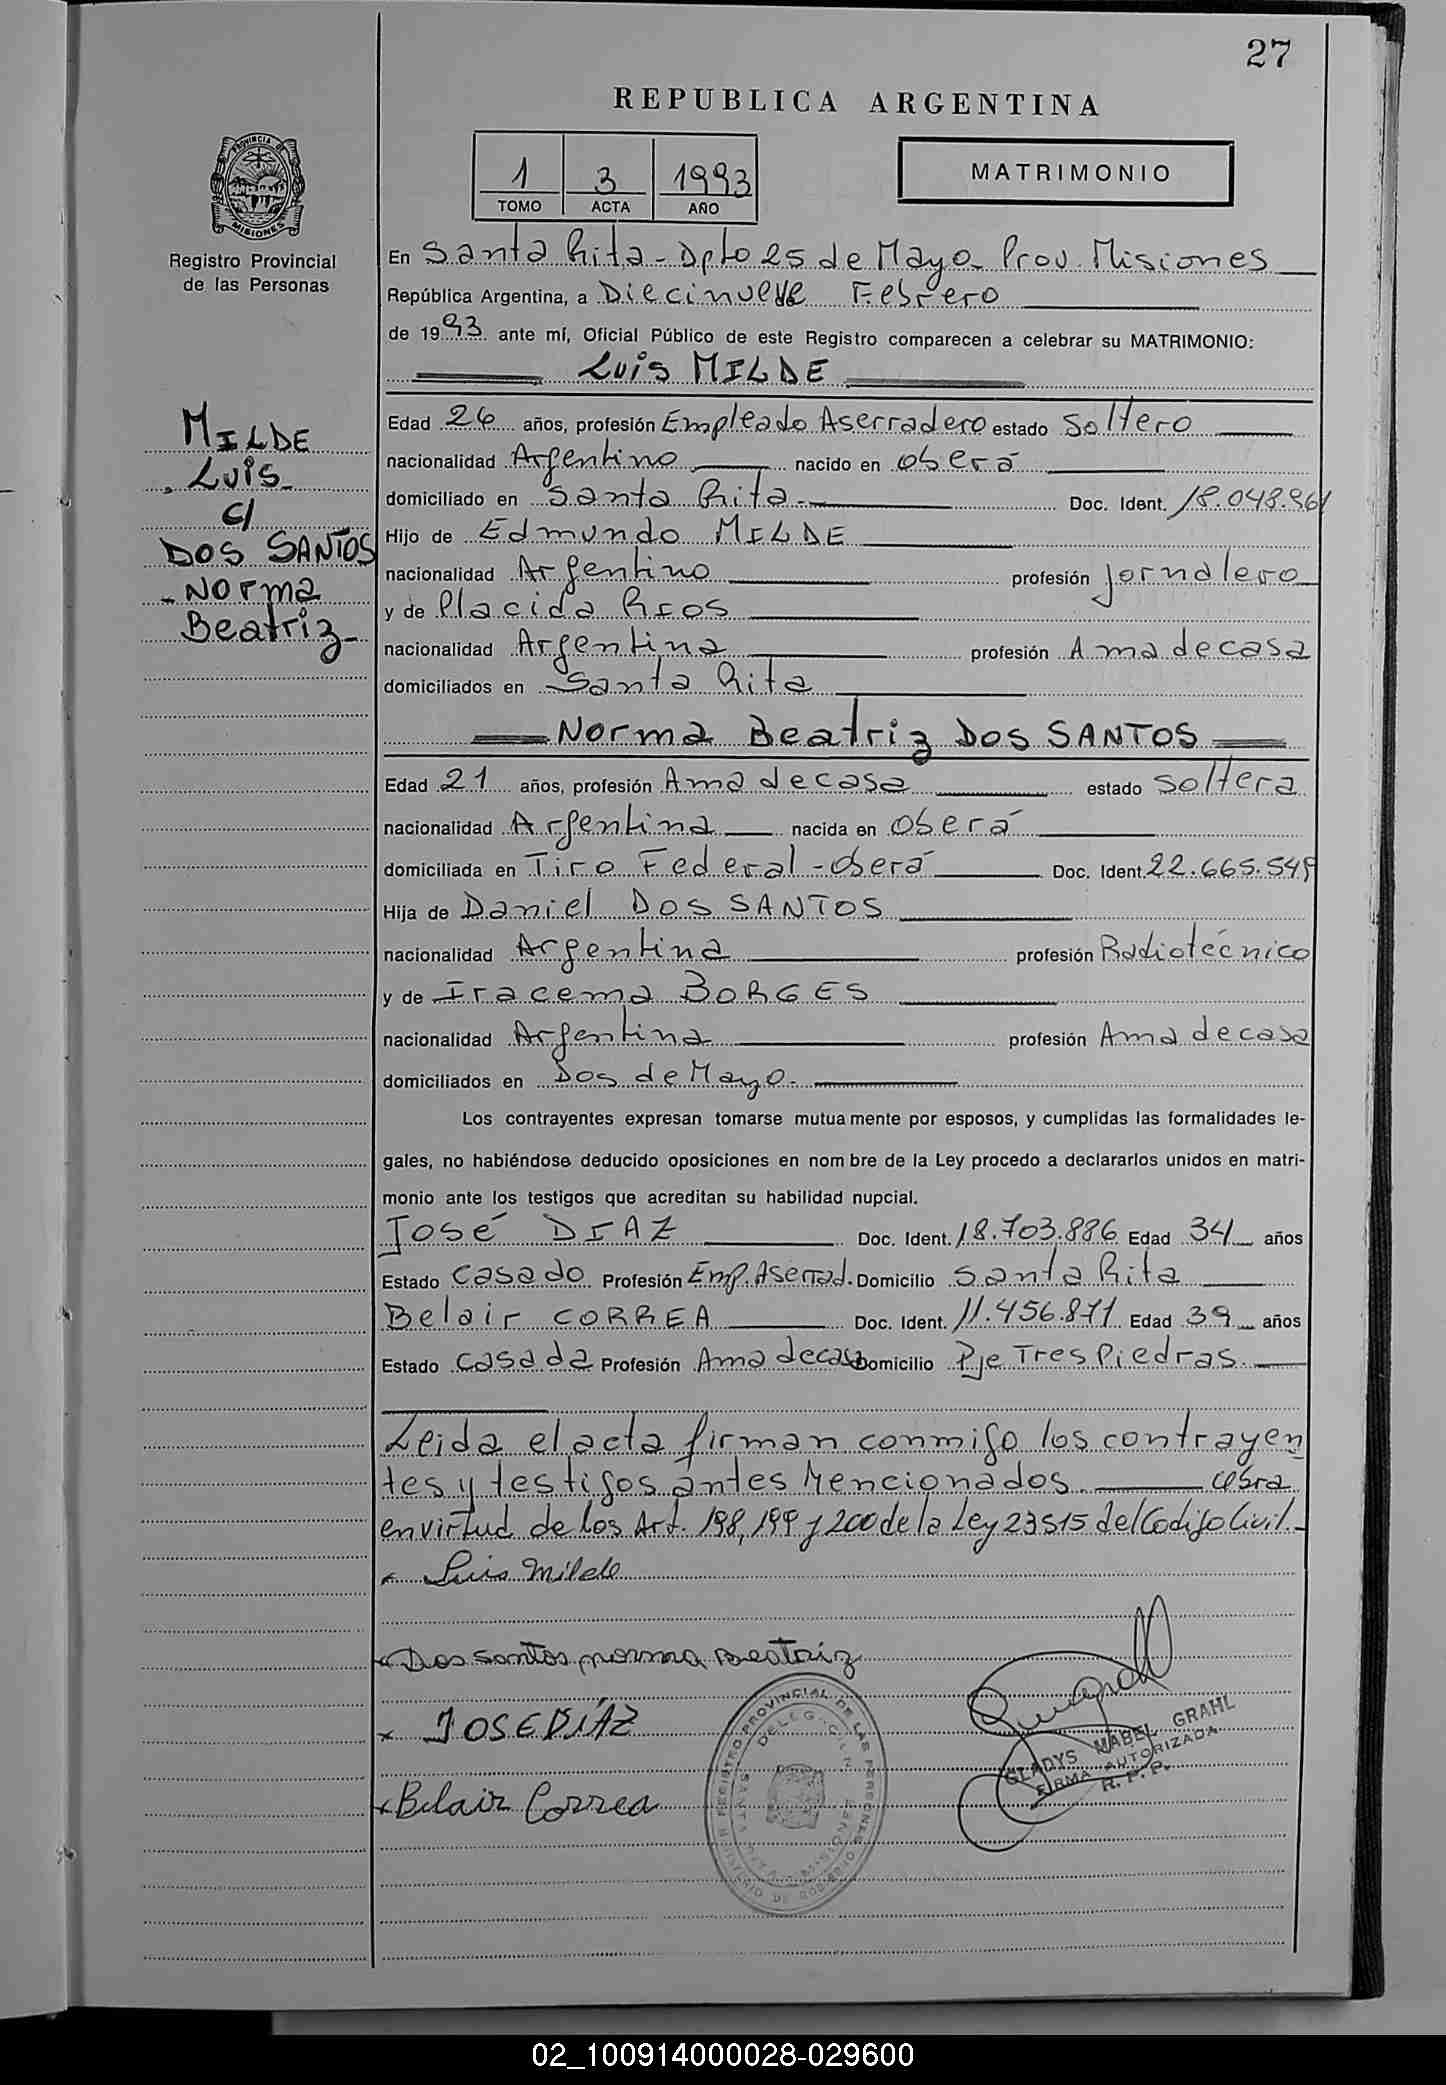 27
REPUBLICA ARGENTINA
PROVINCIA DE
MISIONES
Registro Provincial
de las Personas
1 3 1993
TOMO ACTA AÑO
MATRIMONIO
En Santa Rita - Dpto 25 de Mayo Prov. Misiones
República Argentina, a Diecinueve Febrero
de 1993 ante mí, Oficial Público de este Registro comparecen a celebrar su MATRIMONIO:
Luis MILDE
MILDE
Luis
c/
DOS SANTOS
Norma
Beatriz
Edad 26 años, profesión Empleado Aserradero estado Soltero
nacionalidad Argentino nacido en Oberá
domiciliado en Santa Rita Doc. Ident. 18.048.961
Hijo de Edmundo MILDE
nacionalidad Argentino profesión Jornalero
y de Placida RIOS
nacionalidad Argentina profesión Ama de casa
domiciliados en Santa Rita
Norma Beatriz DOS SANTOS
Edad 21 años, profesión Ama de casa estado Soltera
nacionalidad Argentina nacida en Oberá
domiciliada en Tiro Federal - Oberá Doc. Ident. 22.665.549
Hija de Daniel DOS SANTOS
nacionalidad Argentina profesión Radiotécnico
y de Iracema BORGES
nacionalidad Argentina profesión Ama de casa
domiciliados en Dos de Mayo
Los contrayentes expresan tomarse mutuamente por esposos, y cumplidas las formalidades le-
gales, no habiéndose deducido oposiciones en nombre de la Ley procedo a declararlos unidos en matri-
monio ante los testigos que acreditan su habilidad nupcial.
José DIAZ Doc. Ident. 18.703.886 Edad 34 años
Estado Casado Profesión Emp. Aserrad. Domicilio Santa Rita
Belair CORREA Doc. Ident. 11.456.871 Edad 39 años
Estado Casada Profesión Ama de casa Domicilio Pje Tres Piedras
Leida el acta firman conmigo los contrayen
tes y testigos antes mencionados. Obra
en virtud de los Art. 198, 199 y 200 de la Ley 23515 del Codigo Civil.-
Luis Milde
Dos Santos Norma Beatriz
x JOSE DÍAZ
x Belair Correa
REGISTRO PROVINCIAL DE LAS PERSONAS
MINISTERIO DE GOBIERNO
SANTA RITA
GLADYS MABEL GRAHL
FIRMA AUTORIZADA
R. P. P.
02_100914000028-029600